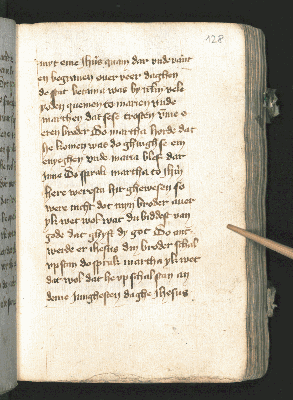 128
eme ihūs quam dar vnde vant
en begrauen ouer veer daghen
was by
ioden quemen to marien vnde
marthen dat se se trosten vme e
eren broder Do martha horde dat
he komen was do ghingh se em
enyeghen vnde maria blef dar
inne Do sprak martha to ihū
here werestu hir ghewesen so
were nicht dot myn broder auer
yk wet wol wat du biddest van
gode dat ghyft dy got Do ant
werde er ihesus din broder schal
vp stan do sprak martha yk wet
dat wol dat he vp schal stan an
deme iunghesten daghe ihesus